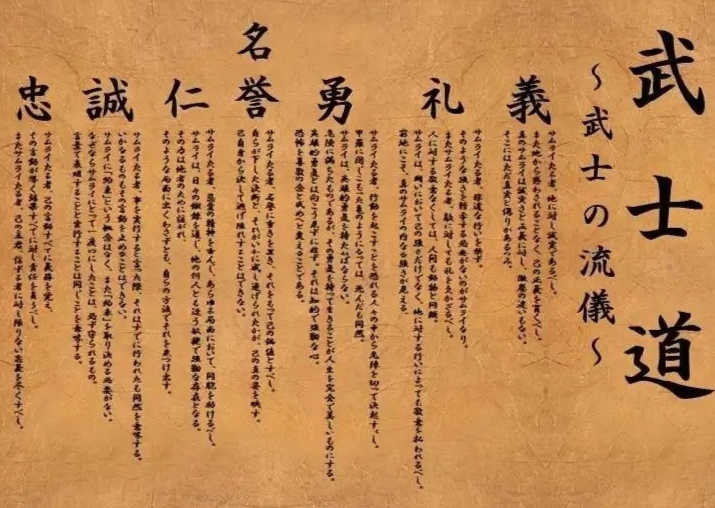 武士道
～武士の流儀～
義
サムライたる者、他に対し誠実であるべし。
また他から惑わされることなく、己の正義を貫くべし。
真のサムライは誠実さと正義に対し、微塵の迷いもない。
そこにはただ真実と偽りがあるのみ。
礼
サムライたる者、非道な行いを恥ず。
そのような強さを誇示する必要がないのがサムライなり。
またサムライたる者、敵に対しても礼を欠かざるべし。
人に対する敬意なくしては、人間も獣物と同類。
サムライは、闘いにおいて己の強さだけでなく、他に対する行いによっても敬意を払われるべし。
窮地にこそ、真のサムライの内なる強さが見える。
勇
サムライたる者、行動を起こすことを恐れる人々の中から先陣を切って決起すべし。
甲羅に閉じこもった亀のようになっては、死んだも同然。
サムライは、英雄的勇気を持たねばならない。
危険に満ちたものであるが、その勇気を持って生きることが人生を完全で美しいものにする。
英雄的勇気とは向こう見ずに非ず。それは知的で強靭な心。
恐怖を尊敬の念と戒めへと変えることである。
名誉
サムライたる者、名誉に重きを置き、それをもって己の価値とすべし。
自らが下した決断と、それがいかに成し遂げられたかが、己の真の姿を映す。
己自身から決して逃げ隠れすることはできない。
仁
サムライたる者、慈愛の精神を重んじ、あらゆる局面において、同胞を助けるべし。
サムライは、日々の鍛錬を通し、他の何人とも違う敏捷で強靭な存在となる。
その力は他者のために注がれ、
そのような局面に出くわさずとも、自らの方法でそれを見つけ出す。
誠
サムライたる者、事を実行すると言った際、それはすでに行われたも同然を意味する。
いかなるものもその言動を止めることはできない。
サムライに「約束」という概念はなく、また「約束」を取り決める必要がない。
なぜならサムライにとって一度口にしたことは、必ず守られるもの。
言葉で表現することと実行することは同じことを意味する。
忠
サムライたる者、己の言動すべてに義務を覚え、
その言動が導く結果すべてに対し責任を負うべし。
またサムライたる者、己の主君、信ずる者に対し限りない忠義を尽くすべし。